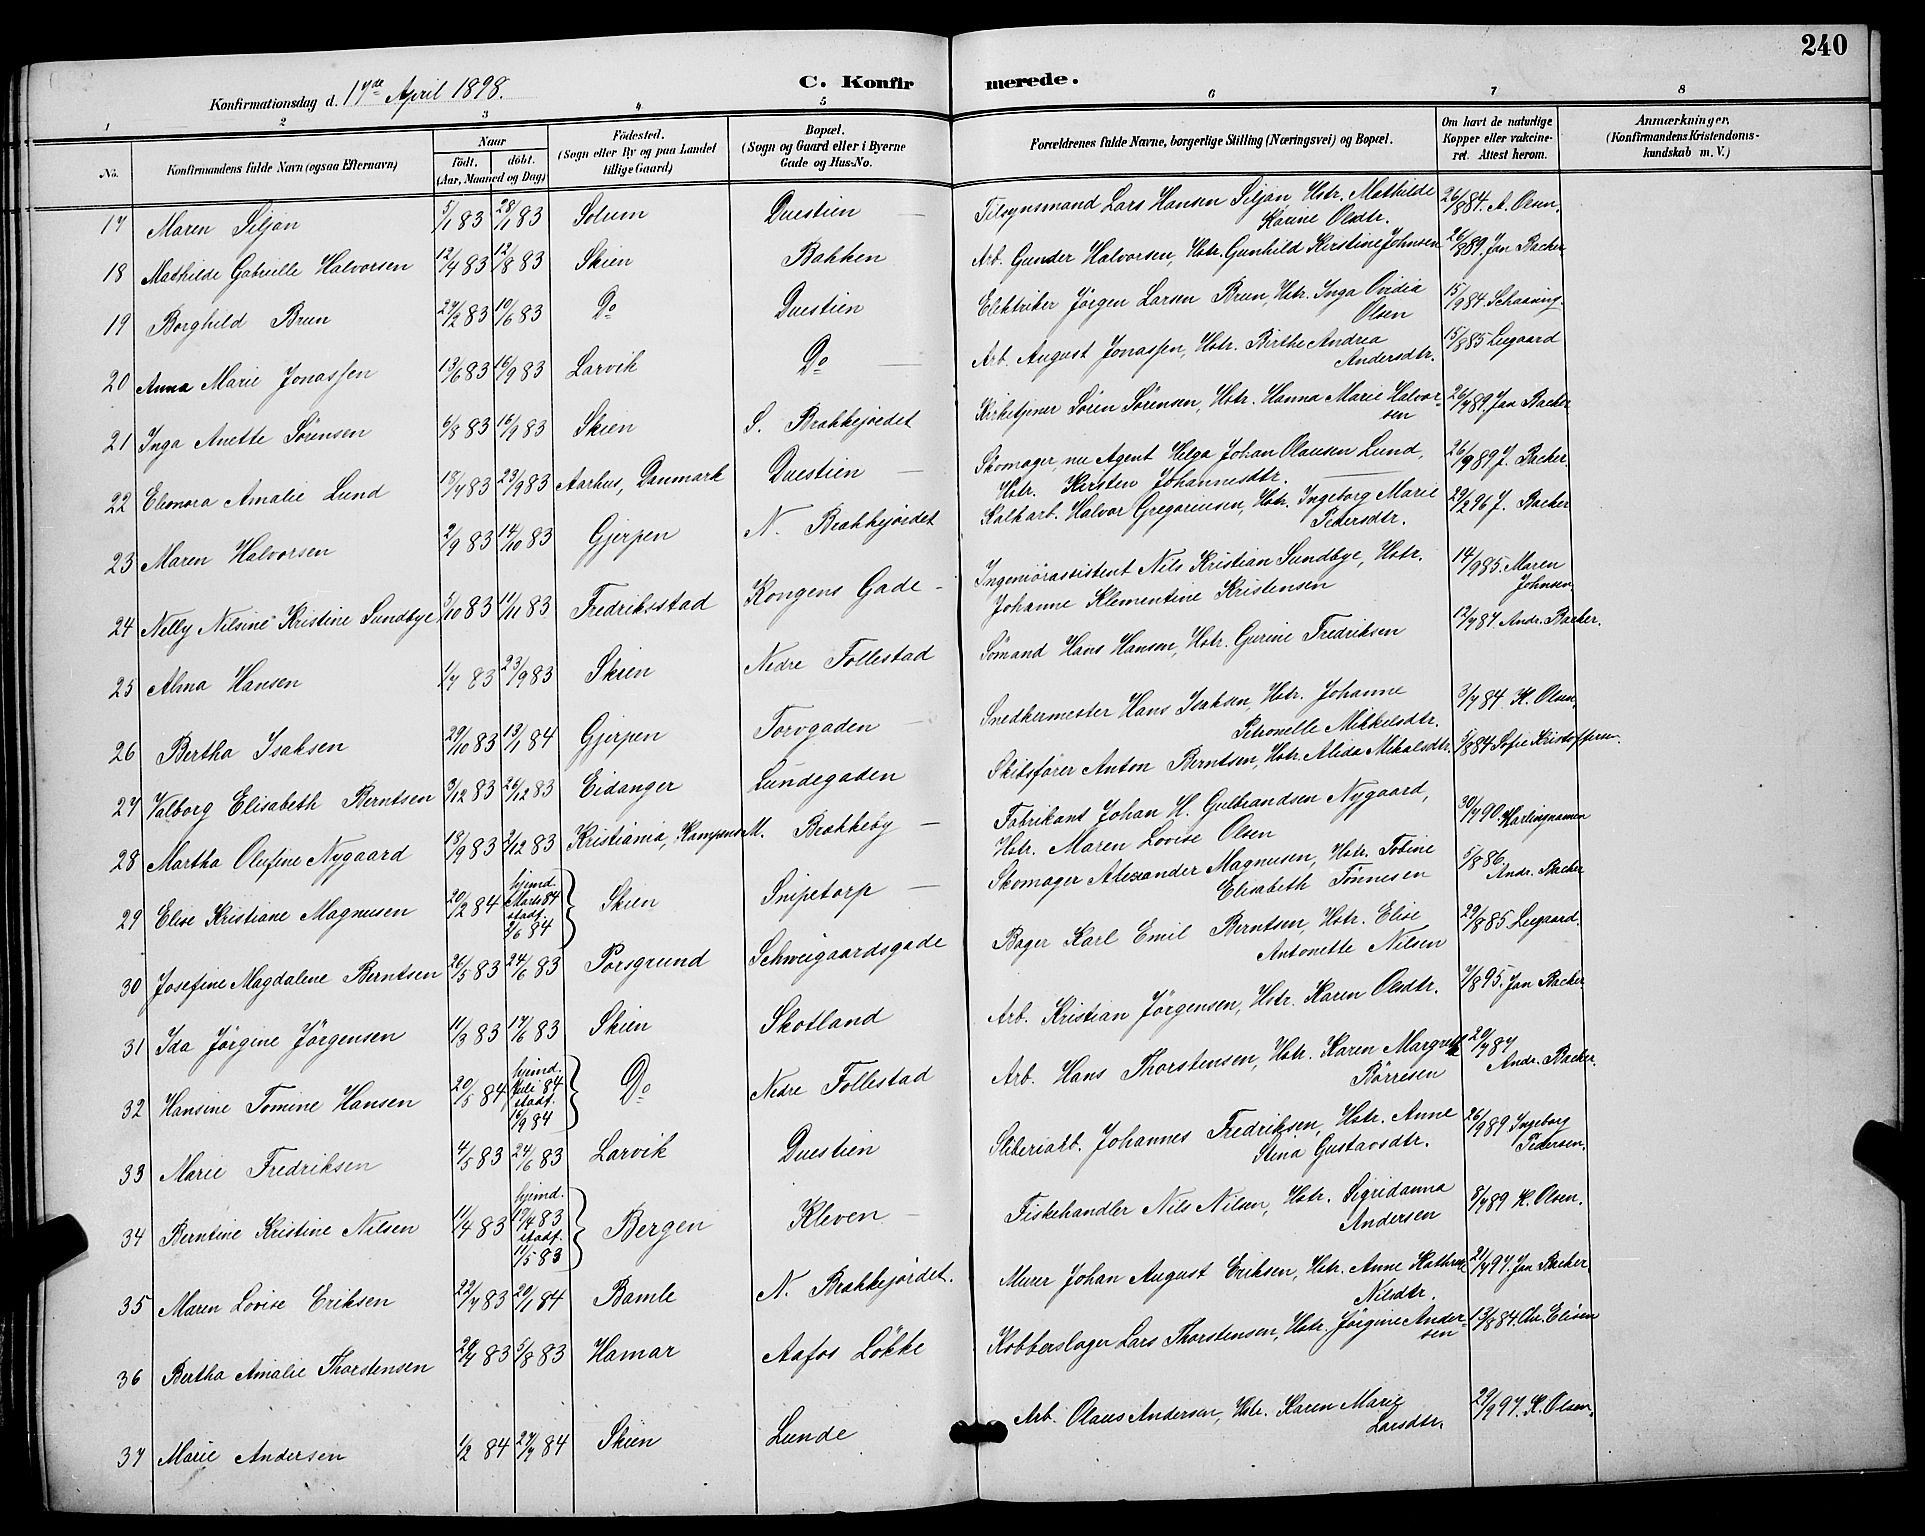 240
C. Konfirmerede.
Konfirmationsdag d. 17de April 1898.
1 2 3 4 5 6 7 8
No. Konfirmandens fulde Navn (ogsaa Efternavn) Naar födt. döbt. (Aar, Maaned og Dag) Födested. (Sogn eller By og paa Landet tillige Gaard) Bopæl. (Sogn og Gaard eller i Byerne Gade og Hus-No. Forældrenes fulde Navne, borgerlige Stilling (Næringsvei) og Bopæl. Om havt de naturlige Kopper eller vakcineret. Attest herom. Anmærkninger. (Konfirmandens Kristendomskundskab m. V.)
17 Maren Siljan 5/1 83 28/1 83 Solum Duestien — Tilsynsmand Lars Hansen Siljan Hstr. Mathilde Karine Olsdtr. 26/8 84. A. Olsen.
18 Mathilde Gabrielle Halvorsen 12/4 83 12/8 83 Skien Bakken Arb. Gunder Halvorsen, Hstr. Gunhild Kirstine Johnsen 26/8 89. Jan Backer
19 Borghild Brun 27/2 83 10/6 83 Do Duestien Elektriker Jörgen Larsen Brun, Hstr. Inga Ovidia Olsen 15/9 84. Schaaning
20 Anna Marie Jonassen 13/6 83 16/9 83 Larvik Do — Arb. August Jonassen, Hstr. Birthe Andrea Andersdtr. 15/8 85 Legaard
21 Inga Anette Sörensen 6/8 83 16/9 83 Skien S. Brækkejordet Kirketjener Sören Sörensen, Hstr. Hanna Marie Halvorsen 26/7 89. Jan Backer
22 Elenora Amalie Lund 18/7 83 23/9 83 Aarhus, Danmark Duestien — Skomager, nu Agent Helga Johan Olausen Lund, Hstr. Kirsten Johannesdtr. 26/9 89 J. Backer.
23 Maren Halvorsen 2/9 83 14/10 83 Gjerpen N. Brækkejordet Kalkarb. Halvor Gregoriusen, Hstr. Ingeborg Marie Pedersdtr. 29/2 96 J. Backer
24 Nelly Nilsine Kristine Sundbye 5/10 83 11/11 83 Fredriksstad Kongens Gade - Ingeniörassistent Nils Kristian Sundbye, Hstr. Johanne Klementine Kristensen 14/9 85. Maren Johnsen.
25 Alma Hansen 1/7 83 23/9 83 Skien Nedre Follestad Sömand Hans Hansen, Hstr. Gurine Fredriksen 12/7 87. Andr. Backer.
26 Bertha Isaksen 29/10 83 13/1 84 Gjerpen Torvgaden — Snedkermester Hans Isaksen, Hstr. Johanne Petronelle Mikkelsdtr. 3/7 84 K. Olsen.
27 Valborg Elisabeth Berntsen 3/12 83 26/12 83 Eidanger Lundegaden Skibsförer Anton Berntsen, Hstr. Alida Mikalsdtr. 5/8 84 Sofie Kristoffersen.
28 Martha Olufine Nygaard 18/9 83 2/12 83 Kristiania, Kampens M. Brækkeby — Fabrikant Johan H. Gulbrandsen Nygaard, Hstr. Maren Lovise Olsen 30/7 90.
29 Elise Kristiane Magnusen 20/2 84 hjemd. Marts 84 stadf. 2/6 84 Skien Snipetorp — Skomager Alexander Magnusen, Hstr. Tobine Elisabeth Tönnesen 5/8 86. Andr. Backer
30 Josefine Magdalene Berntsen 26/5 83 24/6 83 Porsgrund Schweigaardsgade Bager Karl Emil Berntsen, Hstr. Elise Antonette Nilsen 29/8 85 Legaard.
31 Ida Jörgine Jörgensen 11/3 83 17/6 83 Skien Skotland Arb. Kristian Jörgensen, Hstr. Karen Olsdtr. 7/8 95. Jan Backer
32 Hansine Tomine Hansen 20/5 84 hjemd. Juli 84 stadf. 16/9 84 Do Nedre Follestad Arb. Hans Thorstensen, Hstr. Karen Margrethe Börresen 20/7 87 Andr. Backer.
33 Marie Fredriksen 4/5 83 24/6 83 Larvik Duestien Sliberiarb. Johannes Fredriksen, Hstr. Anne Stina Gustavsdtr. 26/9 89 Ingeborg Pedersen.
34 Berntine Kristine Nilsen 11/4 83 hjemd. 19/4 83 stadf. 11/5 83 Bergen Kleven — Fiskehandler Nils Nilsen, Hstr. Sigridanna Andersen 8/7 89 K. Olsen.
35 Maren Lovise Eriksen 22/7 83 20/1 84 Bamle N. Brækkejordet. Murer Johan August Eriksen, Hstr. Anne Kathrine Nilsdtr. 21/7 97. Jan Backer.
36 Bertha Amalie Thorstensen 29/4 83 5/8 83 Hamar Aafos Lökke Kobberslager Lars Thorstensen, Hstr. Jörgine Andersen 13/8 84. Chr. Elisen
37 Marie Andersen 1/2 84 27/7 84 Skien Lunde Arb. Olaus Andersen, Hstr. Karen Marie Larsdtr. 29/9 97. K. Olsen.